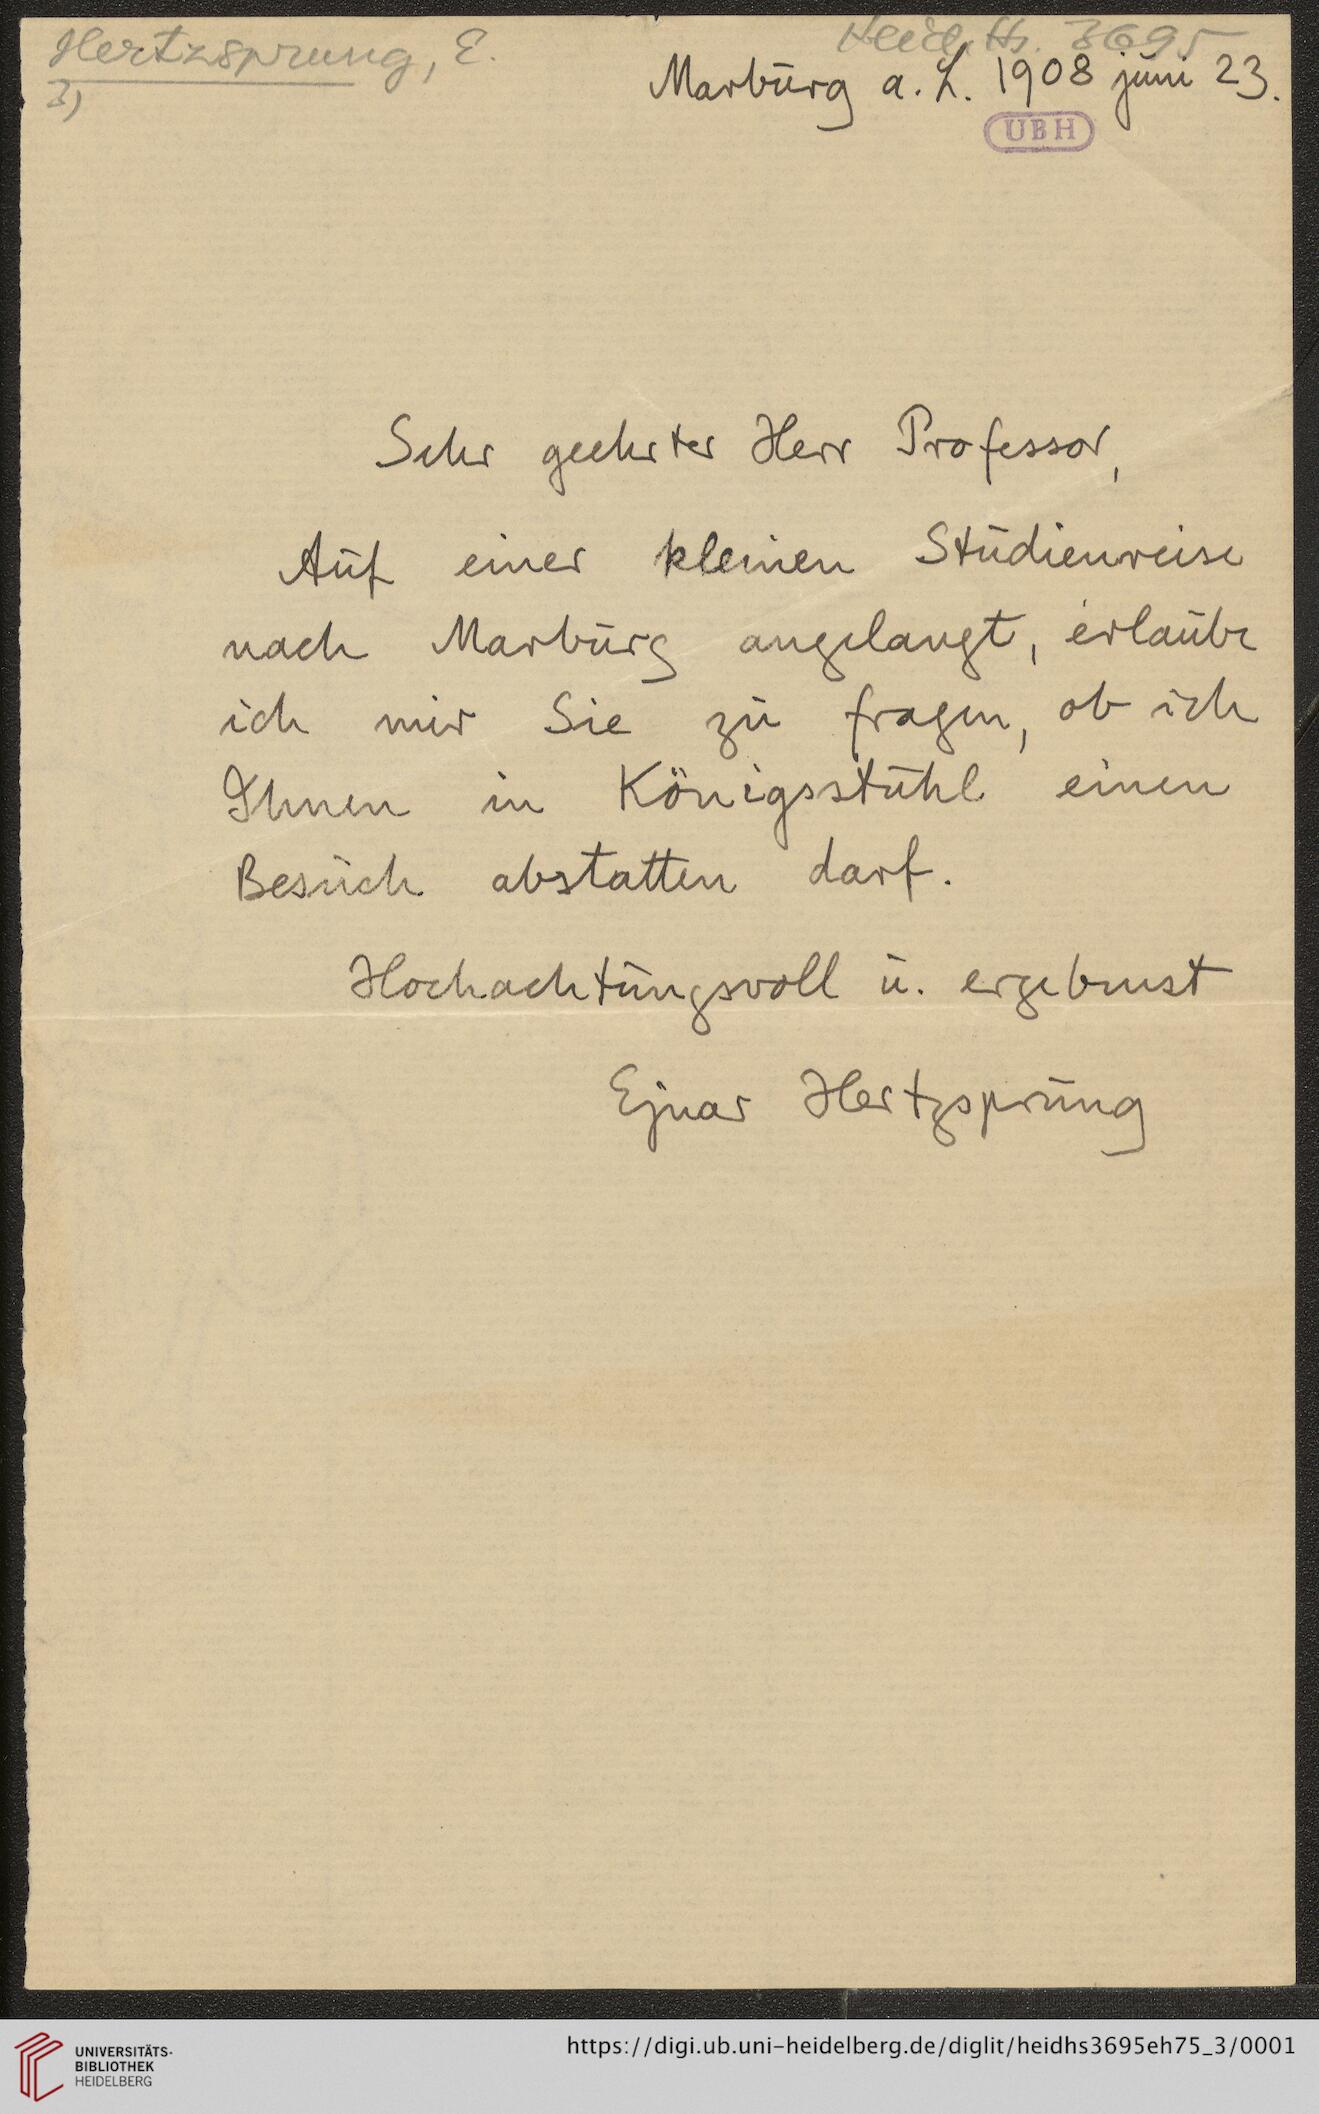 Hertzsprung, E.
Heid. Hs. 3695
3)
Marburg a. L. 1908 juni 23.
UBH
Sehr geehrter Herr Professor,
Auf einer kleinen Studienreise
nach Marburg angelangt, erlaube
ich mir Sie zu fragen, ob ich
Ihnen in Königsstuhl einen
Besuch abstatten darf.
Hochachtungsvoll u. ergebenst
Ejnar Hertzsprung
UNIVERSITÄTS-
BIBLIOTHEK
HEIDELBERG
https://digi.ub.uni-heidelberg.de/diglit/heidhs3695eh75_3/0001